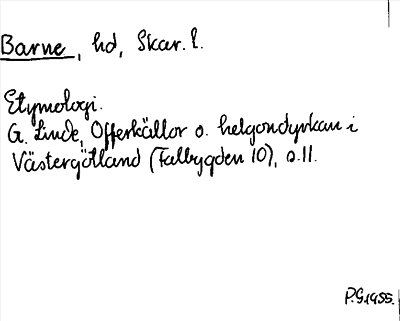 Barne, hd, Skar. l.
Etymologi.
G. Linde, Offerkällor o. helgondyrkan i
Västergötland (Falbygden 10), s. 11.
P.G. 1955.